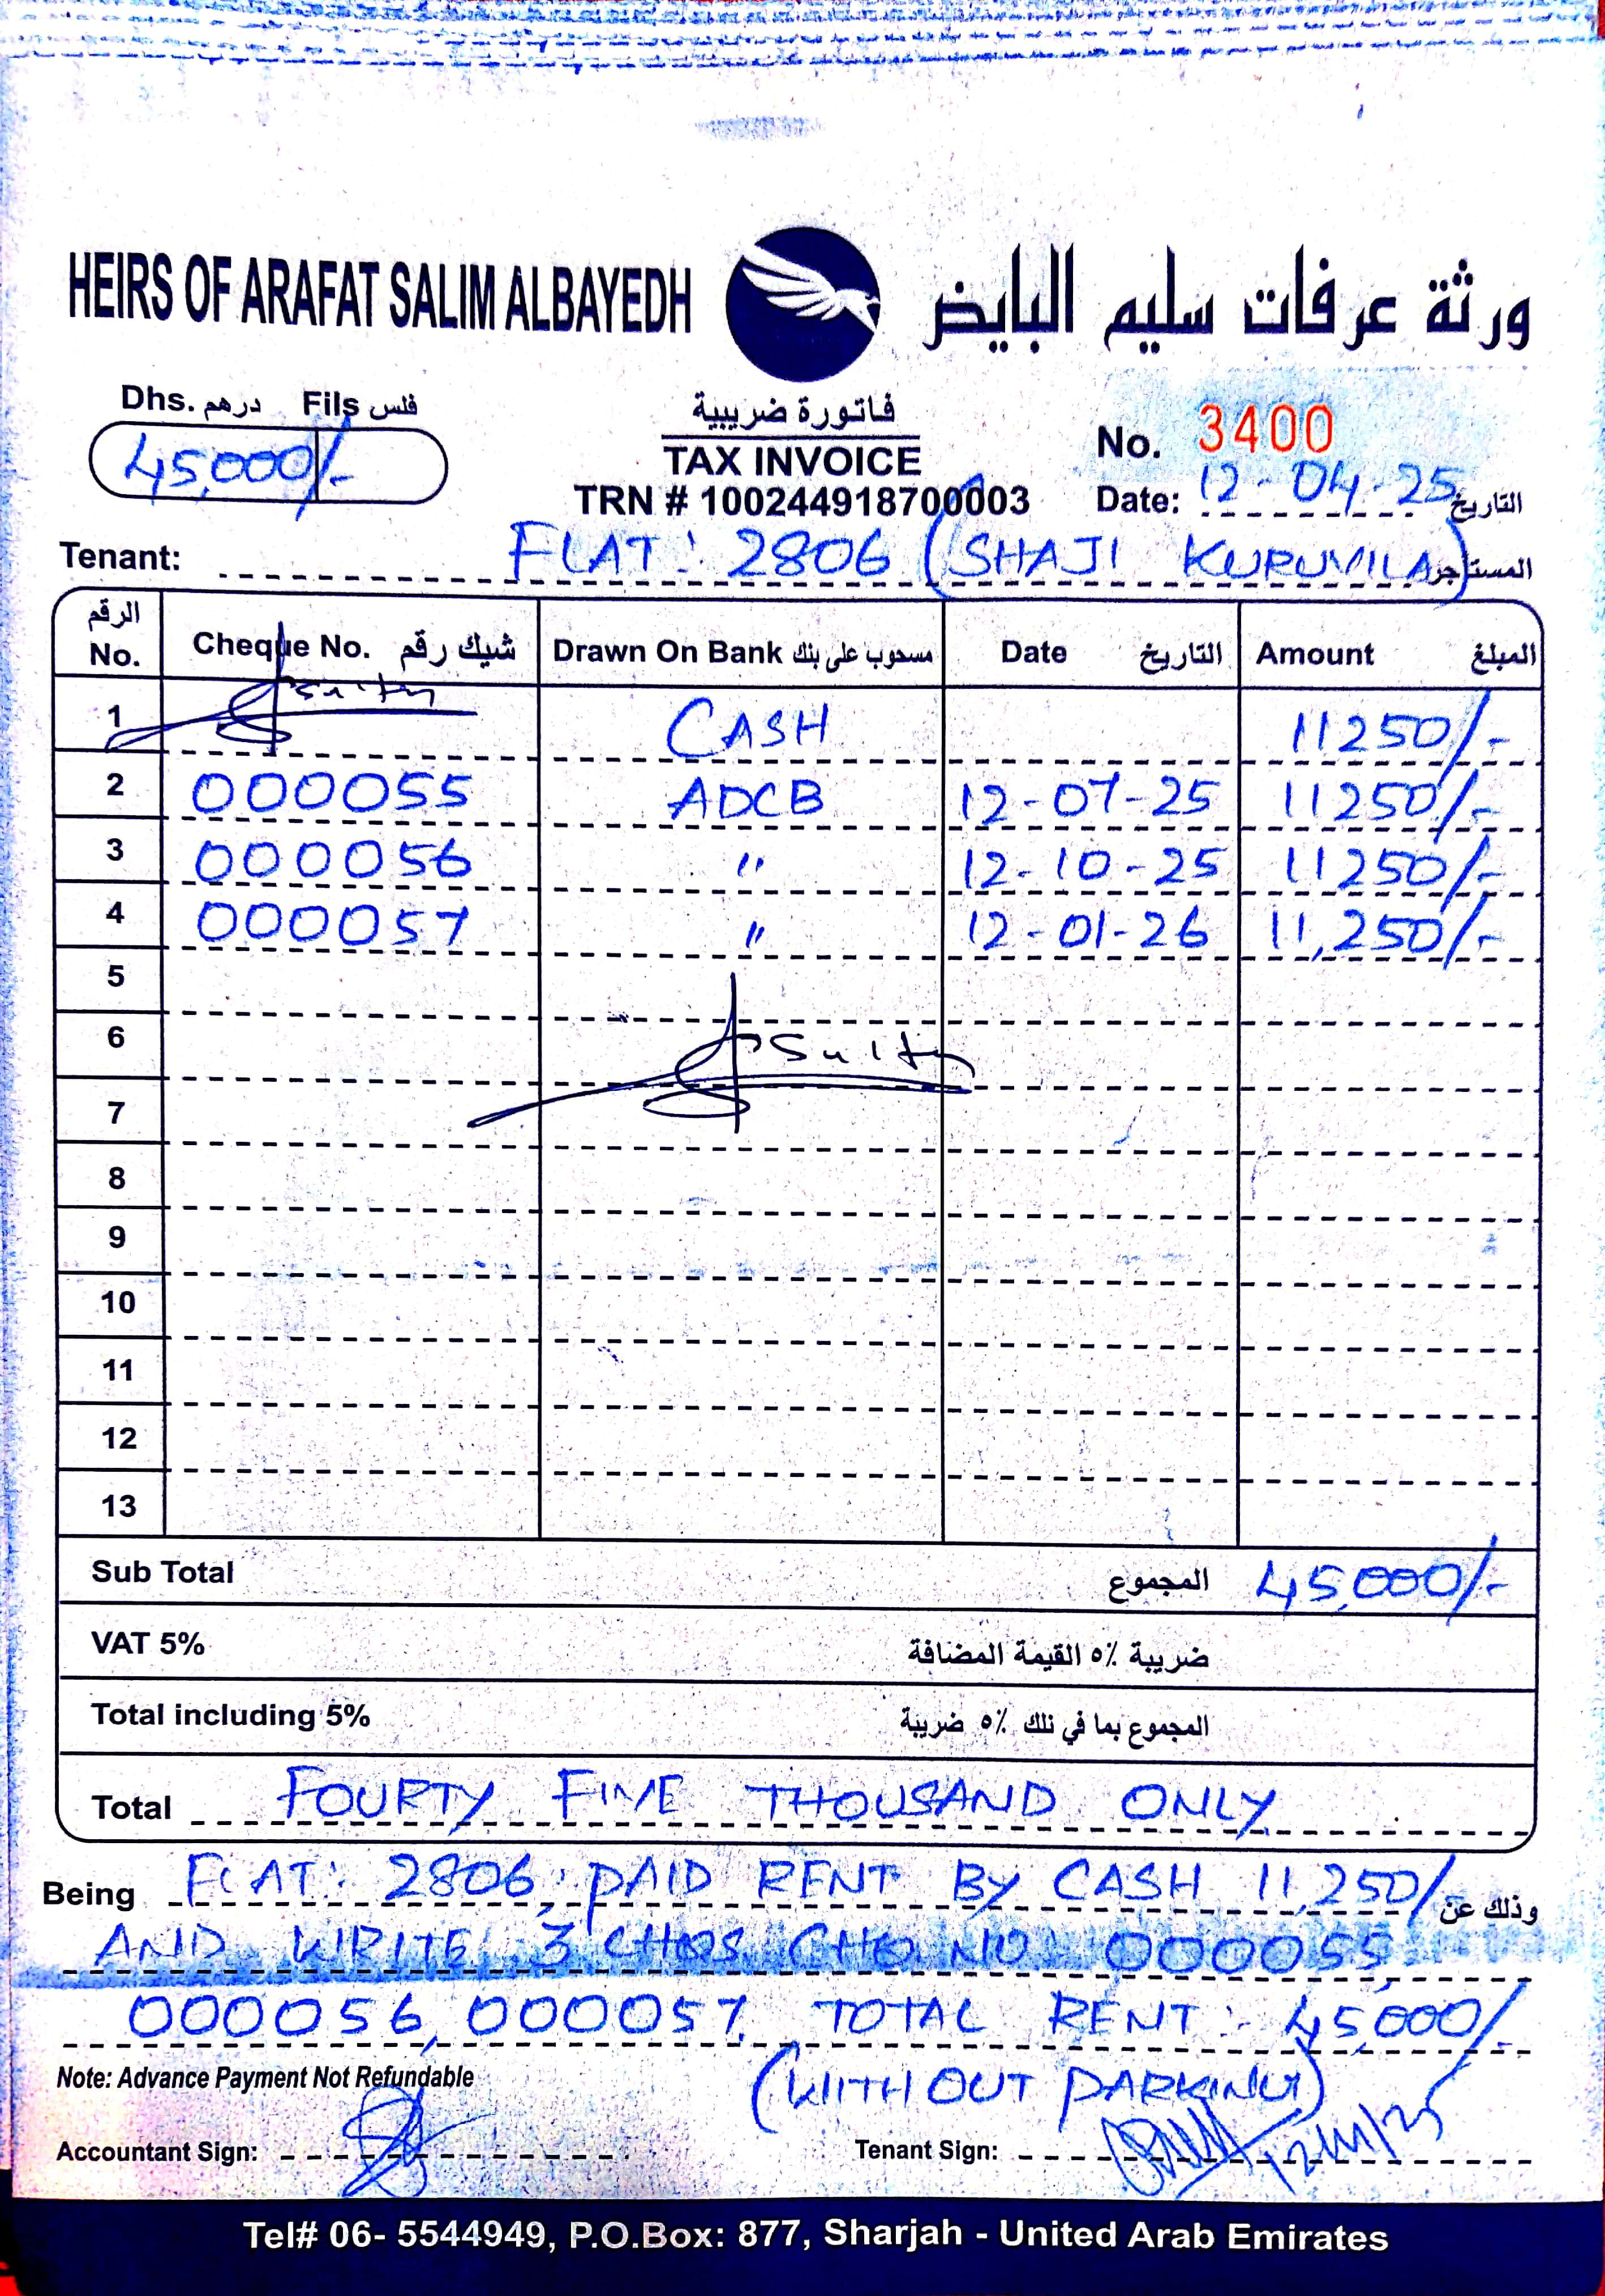 HEIRS OF ARAFAT SALIM ALBAYEDH ورثة عرفات سليم البايض
Dhs. درهم Fils فلس
45,000/-
فاتورة ضريبية
TAX INVOICE
TRN # 100244918700003
No. 3400
Date: 12-04-25 التاريخ
Tenant: FLAT: 2806 (SHAJI KURUVILA) المستاجر
الرقم No. Cheque No. شيك رقم Drawn On Bank مسحوب على بنك Date التاريخ Amount المبلغ
1 CASH 11250/-
2 000055 ADCB 12-07-25 11250/-
3 000056 " 12-10-25 11250/-
4 000057 " 12-01-26 11,250/-
5
6
7
8
9
10
11
12
13
Sub Total المجموع 45,000/-
VAT 5% ضريبة ٥٪ القيمة المضافة
Total including 5% المجموع بما في ذلك ٥٪ ضريبة
Total FOURTY FIVE THOUSAND ONLY
Being FLAT: 2806, PAID RENT BY CASH 11,250/- وذلك عن
AND WRITE 3 CHQS CHQ NO: 000055,
000056, 000057. TOTAL RENT: 45,000/-
Note: Advance Payment Not Refundable (WITHOUT PARKING)
Accountant Sign: Tenant Sign:
Tel# 06- 5544949, P.O.Box: 877, Sharjah - United Arab Emirates